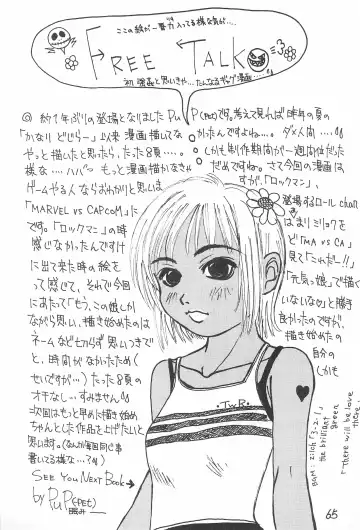 ここの絵が一番力入ってる様な気が…
FREE TALK
初・強姦と思いきや…たんなるギャグ漫画…
◎約1年ぶりの登場となりましたPuP(ペt)です。考えて見れば昨年の夏の
「かなりどじらー」以来漫画描いてなかったんですよねー…。ダメ人間……
やっと描いたと思ったら、たった8頁…。しかも制作期間が一週間位だった
様な…ハハハ もっと漫画描かなきゃだめですね。さて今回の漫画は
ゲームやる人ならおわかりと思いますが、「ロックマン」、
「MARVEL vs CAPCOM」に登場するロールchan
です。「ロックマン」の時はあまりミリョクを
感じなかったんですけど「MA vs CA」
に出て来た時の絵を見て「これだー!!」
って感じて、それで今回「元気っ娘」で描く
にあたって「もう、この娘しかいないなぁ」と描き
ながら思い、描き始めたのは良かったのですが、
ネームなど切らず思いつきで描き始めたの
と、時間がなかったため(自分の
せいですが…)たった8頁しかも
オチなし…すみません
次回はもっと早めに描き始め
ちゃんとした作品を上げたいと
思います。(なんか毎回同じ事
書いてる様な…?)
SEE YOU NEXT BOOK→
by PuP(ペt)
T.W.R
BGM: zilch「3・2・1」
the brilliant green
「There will be love there」
65